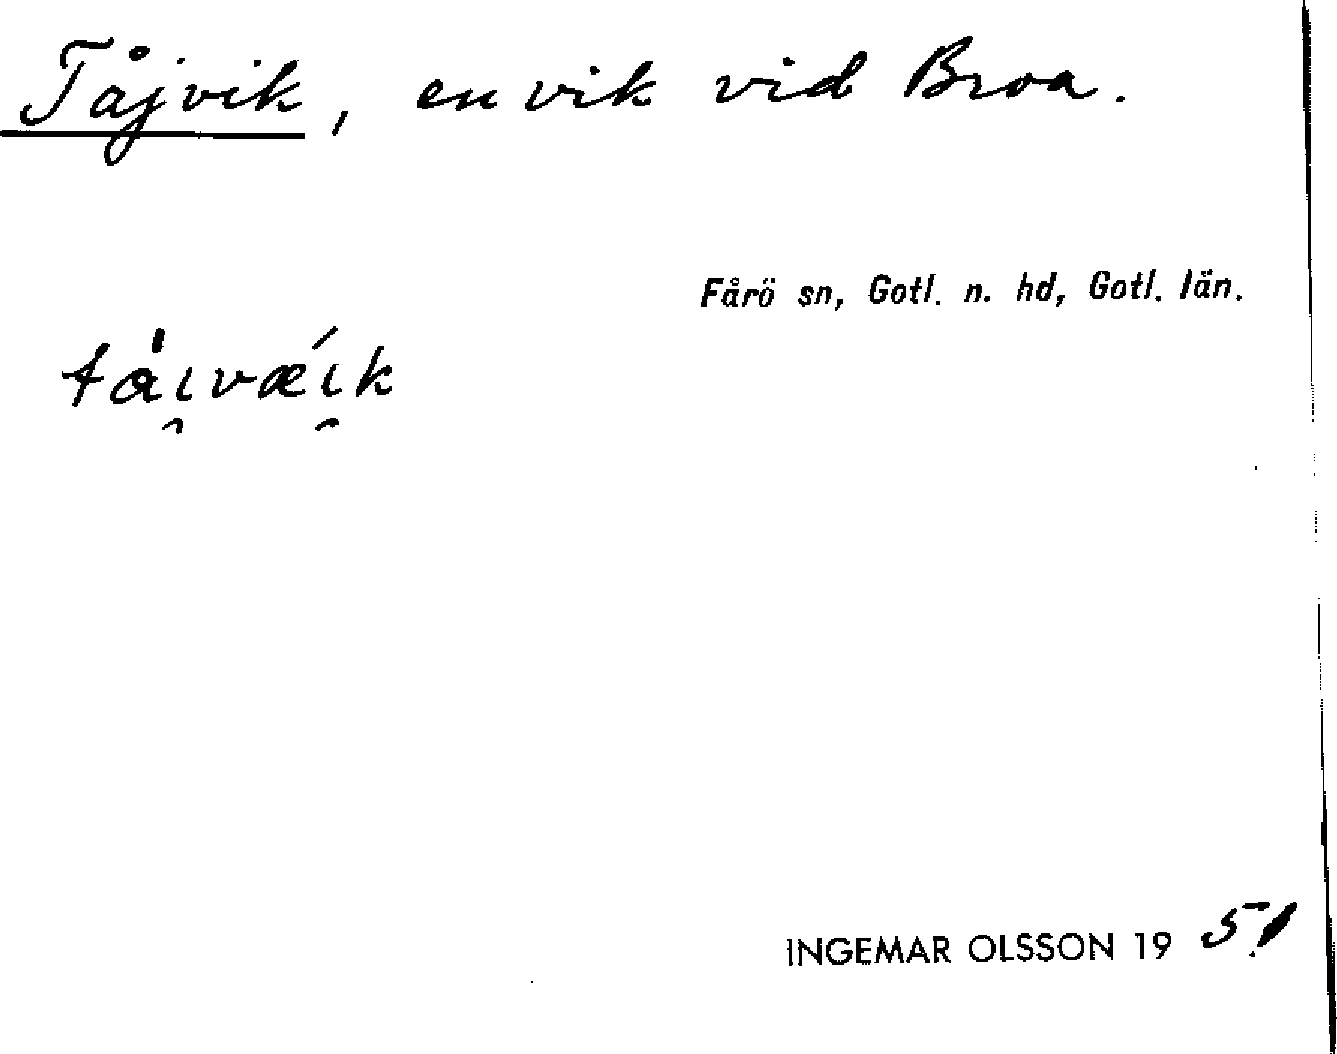 Tåjvik, en vik vid Broa.
Fårö sn, Gotl. n. hd, Gotl. län.
tå̍ɩ̯vǽɩ̯k
INGEMAR OLSSON 19 51